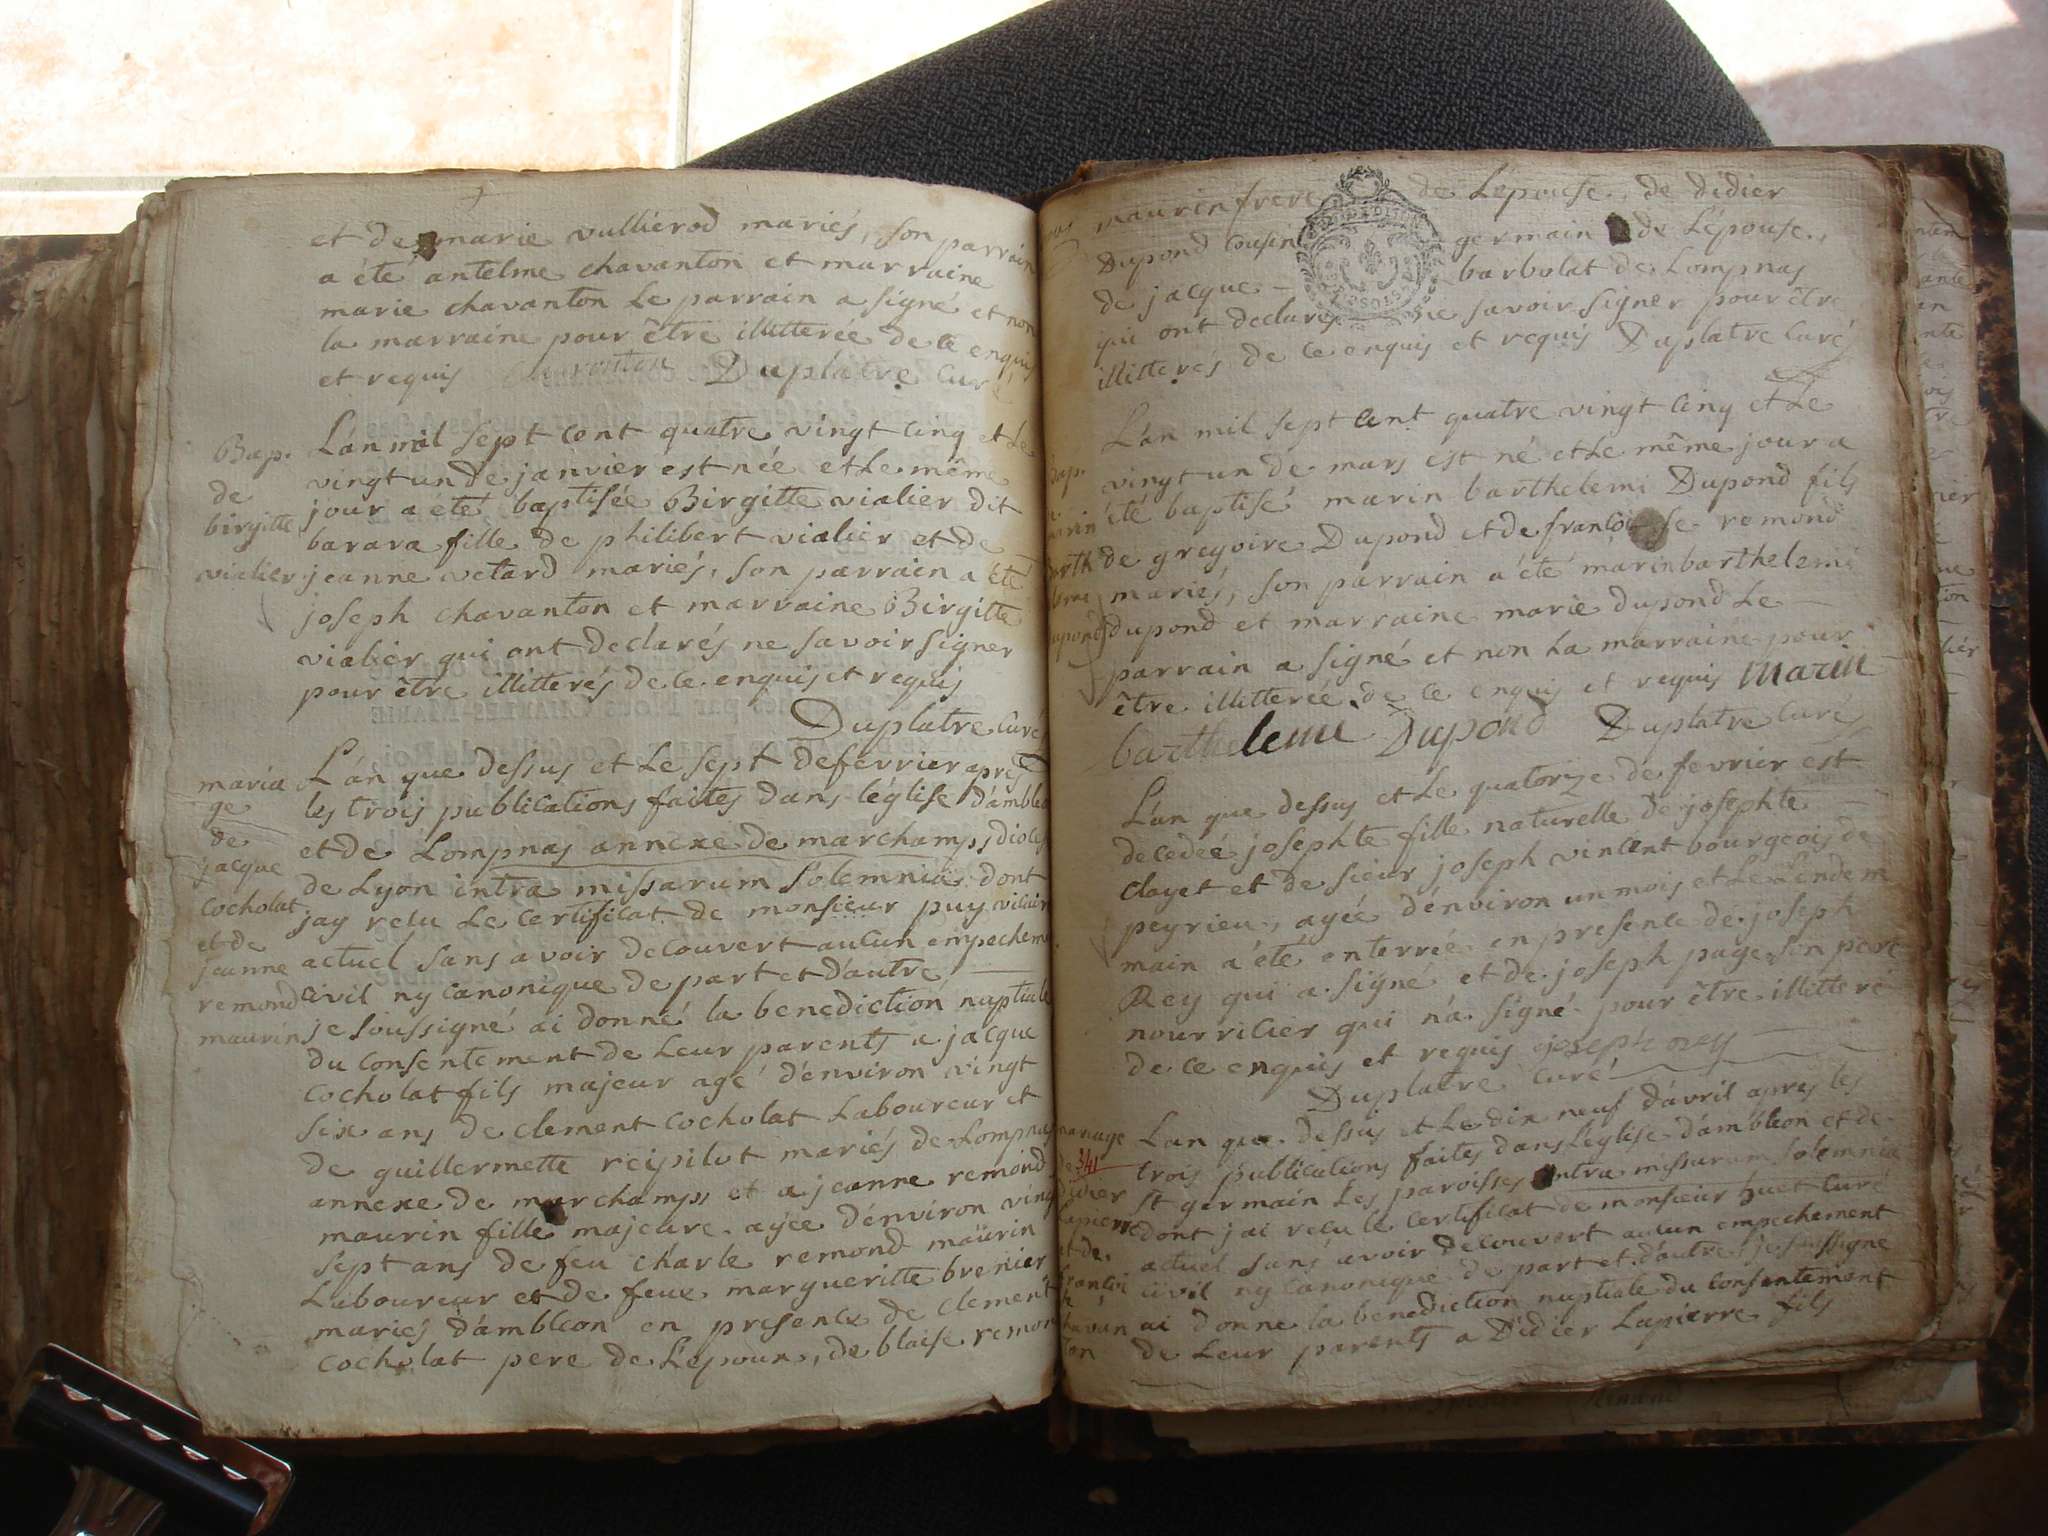 et de marie vulliérod mariés, son parrain
a été antelme chavanton et marraine
marie chavanton Le parrain a signé et non
la marraine pour être illitterée de ce enquis
et requis Chavanton Duplatre Curé
Bap. de birgitte vialier
L'an mil sept cent quatre vingt cinq et Le
vingt un de janvier est née et Le même
jour a été baptisée Birgitte vialier dit
barara fille de philibert vialier et de
jeanne vetard mariés, son parrain a été
joseph chavanton et marraine Birgitte
vialier qui ont declarés ne savoir signer
pour être illitterés de ce enquis et requis
Duplatre Curé
maria
ge
de
jacque
Cocholat
et de
jeanne
remond
maurin
L'an que dessus et Le sept de fevrier apres
les trois publications faites dans l'église d'amble
et de Lompnas annexe de marchamps, dioces
de Lyon intra missarum solemnia dont
jay recu Le certificat de monsieur puy vicaire
actuel sans avoir decouvert aucun empecheme
civil ny canonique de part et d'autre
je soussigné ai donné la benediction nuptiale
du consentement de Leur parents a jacque
Cocholat fils majeur agé d'environ vingt
six ans de clement Cocholat Laboureur et
de guillermette reipilut mariés de Lompnas
annexe de marchamps et a jeanne remond
maurin fille majeure agée d'environ vingt
sept ans de feu charle remond maurin
Laboureur et de feue margueritte brenier
mariés d'ambleon en presence de clement
Cocholat pere de L'epoux, de blaise remon
maurin frere de L'épouse, de didier
Dupond Cousin germain de L'épouse,
de jacque barbolat de Lompnas
qui ont declarés ne savoir signer pour être
illitterés de ce enquis et requis Duplatre Curé
L'an mil sept cent quatre vingt cinq et Le
vingt un de mars est né et Le même jour a
été baptisé marin barthelemi Dupond fils
de gregoire Dupond et de françoise remond
mariés, son parrain a été marin barthelemi
dupond et marraine marie dupond Le
parrain a signé et non La marraine pour
être illitterée de ce enquis et requis marin
barthelemi Dupond Duplatre Curé
L'an que dessus et Le quatorze de fevrier est
decedée josephte fille naturelle de josephte
clayet et de sieur joseph vincent bourgeois de
peyrieu, agée d'environ un mois et Le Lende m
main a été enterrée en presence de joseph
Rey qui a signé et de joseph page son pere
nourricier qui n'a signé pour être illitteré
de ce enquis et requis joseph rey
Duplatre Curé
mariage
de 341
didier
Lapierre
et de
L'an que dessus et Le dix neuf d'avril apres les
trois publications faites dans L'église d'ambleon et de
st germain Les paroisses intra missarum solemnia
dont j'ai recu le certificat de monsieur huet Curé
actuel sans avoir decouvert aucun empechement
civil ny canonique de part et d'autre je soussigné
ai donné la benediction nuptiale du consentement
de Leur parents a Didier Lapierre fils